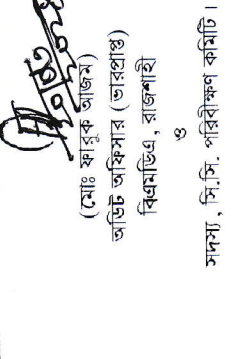 (মোঃ ফারুক আজম)
অডিট অফিসার (ভারপ্রাপ্ত)
বিএমডিএ, রাজশাহী
ও
সদস্য, সি.সি. পরিবীক্ষণ কমিটি।